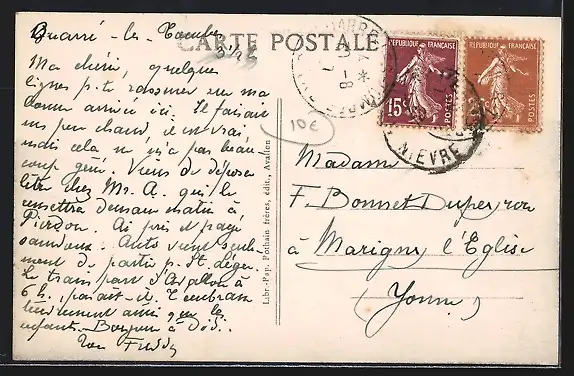 Quarré-les-Tombes
CARTE POSTALE
Ma chérie, quelques
lignes p. te rassurer sur ma
bonne arrivée ici. Il faisait
un peu chaud, il est vrai,
mais cela ne m'a pas beau
coup gêné. Viens de déposer
lettre chez Mr. A. qui le
remettra demain matin à
Ai pris et payé
Auto vient seule
ment de partir p. St. Léger.
Le train part d'Avallon à
6 h. paraît-il. T'embrasse
tendrement ainsi que les
enfants. Bonjour à
ton
Libr.-Pap. Pothain frères, édit., Avallon
10€
REPUBLIQUE FRANÇAISE
15c
POSTES
REPUBLIQUE FRANÇAISE
POSTES
NIEVRE
Madame
F. Bonnet-Dupeyron
à Marigny l'Eglise
(Yonne)